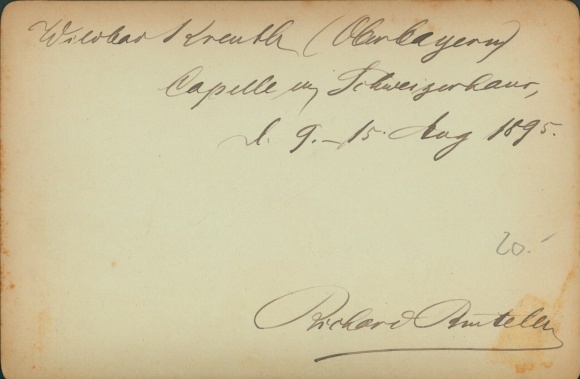 Wildbad Kreuth (Oberbayern)
Capelle u. Schweizerhaus,
d. 9.-15. Aug 1895.
20.-
Richard